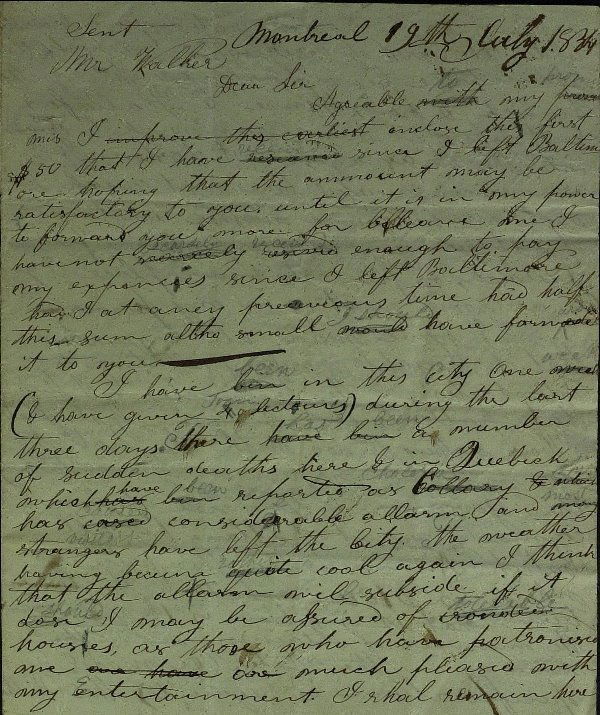 Sent Montreal 19th July 1834
Mr Walker
Dear Sir
Agreable with my
mis I improve this earliest enclose the first
$50 that I have since I left Baltim
ore hoping that the ammount may be
satisfactory to you, until it is in my power
to forward you more for believe me I
have not enough to pay
my expences since I left Baltimore
had I at aney preavious time had half
this sum, altho small would have forw
it to you
I have bin been in this city one
(I have given 4 lectures) during the last
three days there have bin a number
of sudden deaths here & in Quebeck
which have bin been reported as Collary &
has considerable allarm and many
strangers have left the City the weather
having become quite cool again I think
that the allarm will subside, if it
dose I may be assured of crouded
houses, as those who have patronised
me are have are much pleased with
my Entertainment. I shal remain here